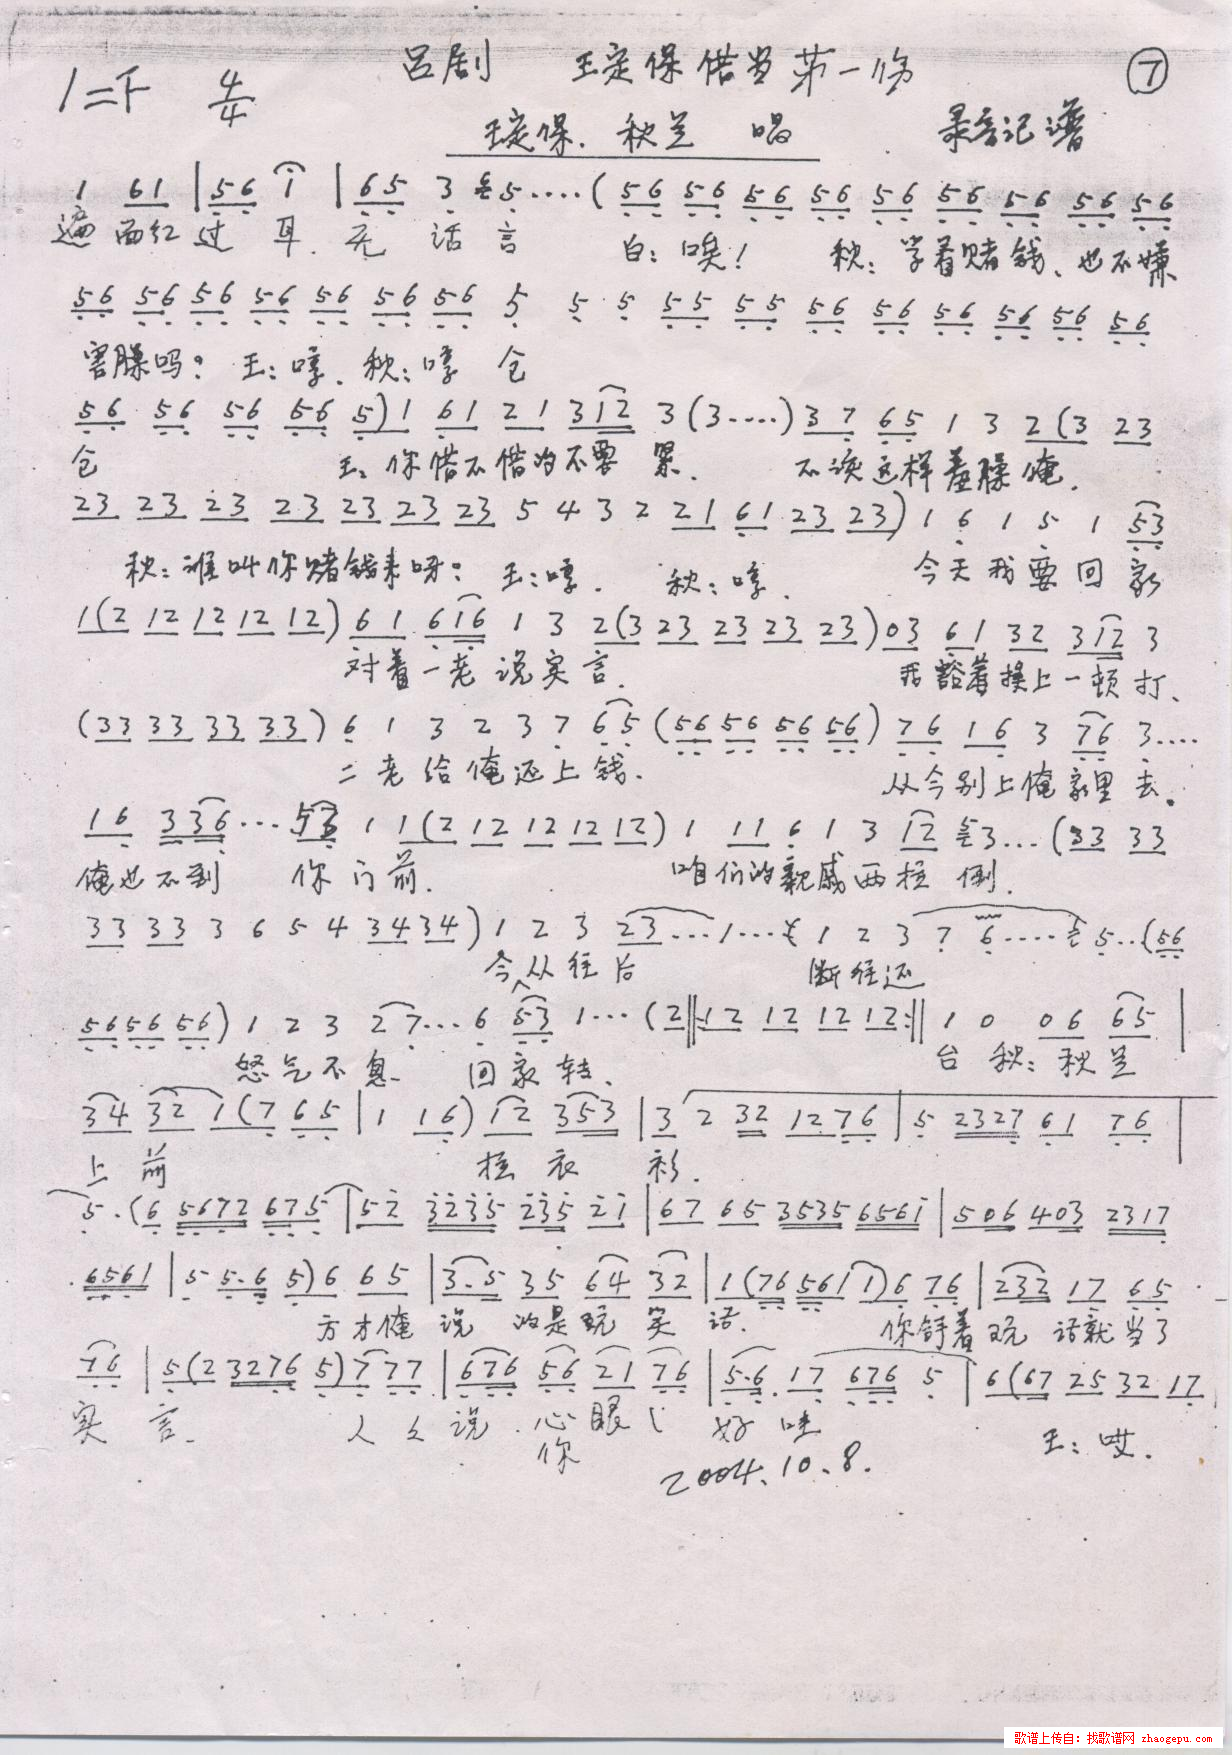 吕剧 王定保借当第一场 ⑦
1=F 4/4
王定保、秋兰 唱 录音记谱
1 61 | 56 i | 65 3 5 ....( 56 56 56 56 56 56 56 56 56
遍面红过耳.无话言 白:唉! 秋:学着赌钱、也不嫌
56 56 56 56 56 56 56 5 5 5 55 55 56 56 56 56 56 56
害臊吗? 王:哼. 秋:哼 仓
56 56 56 56 5) 1 61 21 312 3 (3....) 37 65 1 3 2(3 23
仓 王:你借不借的不要紧. 不该这样羞臊俺.
23 23 23 23 23 23 23 5 4 3 2 21 61 23 23) 1 6 1 5 1 53
秋:谁叫你赌钱来呀? 王:哼. 秋:哼. 今天我要回家
1(2 12 12 12 12) 61 616 1 3 2(3 23 23 23 23) 03 61 32 312 3
对着一老说实言. 我豁着挨上一顿打、
(33 33 33 33) 6 1 3 2 3 7 65 (56 56 56 56) 76 16 3 76 3....
二老给俺还上钱. 从今别上俺家里去。
16 336... 53 1 1(2 12 12 12 12) 1 11 6 1 3 12 3...(33 33
俺也不到 你门前. 咱们的亲戚两拉倒.
33 33 3 6 5 4 34 34) 1 2 3 23...1... 1 2 3 7 6.... 5..(56
今从往后 断往还
56 56 56) 1 2 3 27... 6 53 1...(2 ‖: 12 12 12 12 :‖ 1 0 06 65 |
怒气不息 回家转、 台 秋:秋兰
34 32 1(7 65 | 1 16) 12 353 | 3 2 32 12 76 | 5 2327 61 76 |
上前 拉衣衫.
5.(6 5672 675 | 52 3235 235 21 | 67 65 3535 6561 | 506 403 2317
6561 | 5 5.6 5) 6 65 | 3.5 35 64 32 | 1(76 561 1) 6 76 | 232 17 65
方才俺说的是玩笑话. 你舒着玩话就当了
76 | 5(2 3276 5) 7 77 | 676 56 21 76 | 5.6. 17 676 5 | 6(67 25 32 17
实言. 人人说.你心眼 好哇 王:哎.
2004.10.8.
歌谱上传自:找歌谱网 zhaogepu.com